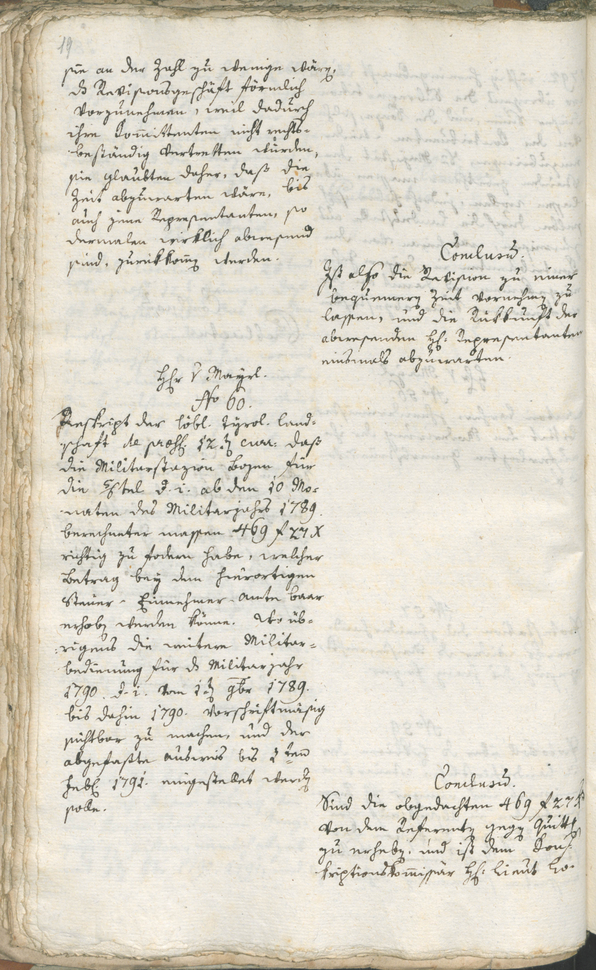 19
sie an der Zahl zu wenige wärn,
ds Revisionsgeschäft förmlich
vorzunehmen, weil dadurch
ihre Committenten nicht rechts-
beständig vertretten würden,
sie glaubten daher, daß die
Zeit abzuwarten wäre, bis
auch jene Representanten, so
dermalen wirklich abwesend
sind, zurükkomen werden.
Conclusum.
Ist also die Revision zu einer
bequemern Zeit vornehmen zu
lassen, und die Rükkunft der
abwesenden H: Representanten
einsmals abzuwarten.
Hr v Mayrl.
No 60.
Reskript der löbl. Tyrol. Land-
schaft de 12 curr: daß
die Militarstazion Bozen für
die d. i. ab den 10 Mo-
naten des Militarjahrs 1789
berechneter massen 469 f 27 x
richtig zu fodern habe, welcher
Betrag bey dem hierortigen
Steuer-Einnehmer-Amte baar
erhoben werden könne. Wo üb-
rigens die weitere Militar-
bedienung für ds Militarjahr
1790. d. i. vom 1 9br 1789.
bis dahin 1790. vorschriftmäßig
sichtbar zu machen, und der
abgefaßte Ausweis bis
Feb. 1791. eingestellet werden
solle.
Conclusum.
Sind die obgedachten 469 f 27 x
von dem Referenten gegen Quitt
zu erheben, und ist dem Kon-
skriptionskommissär H: Lieut